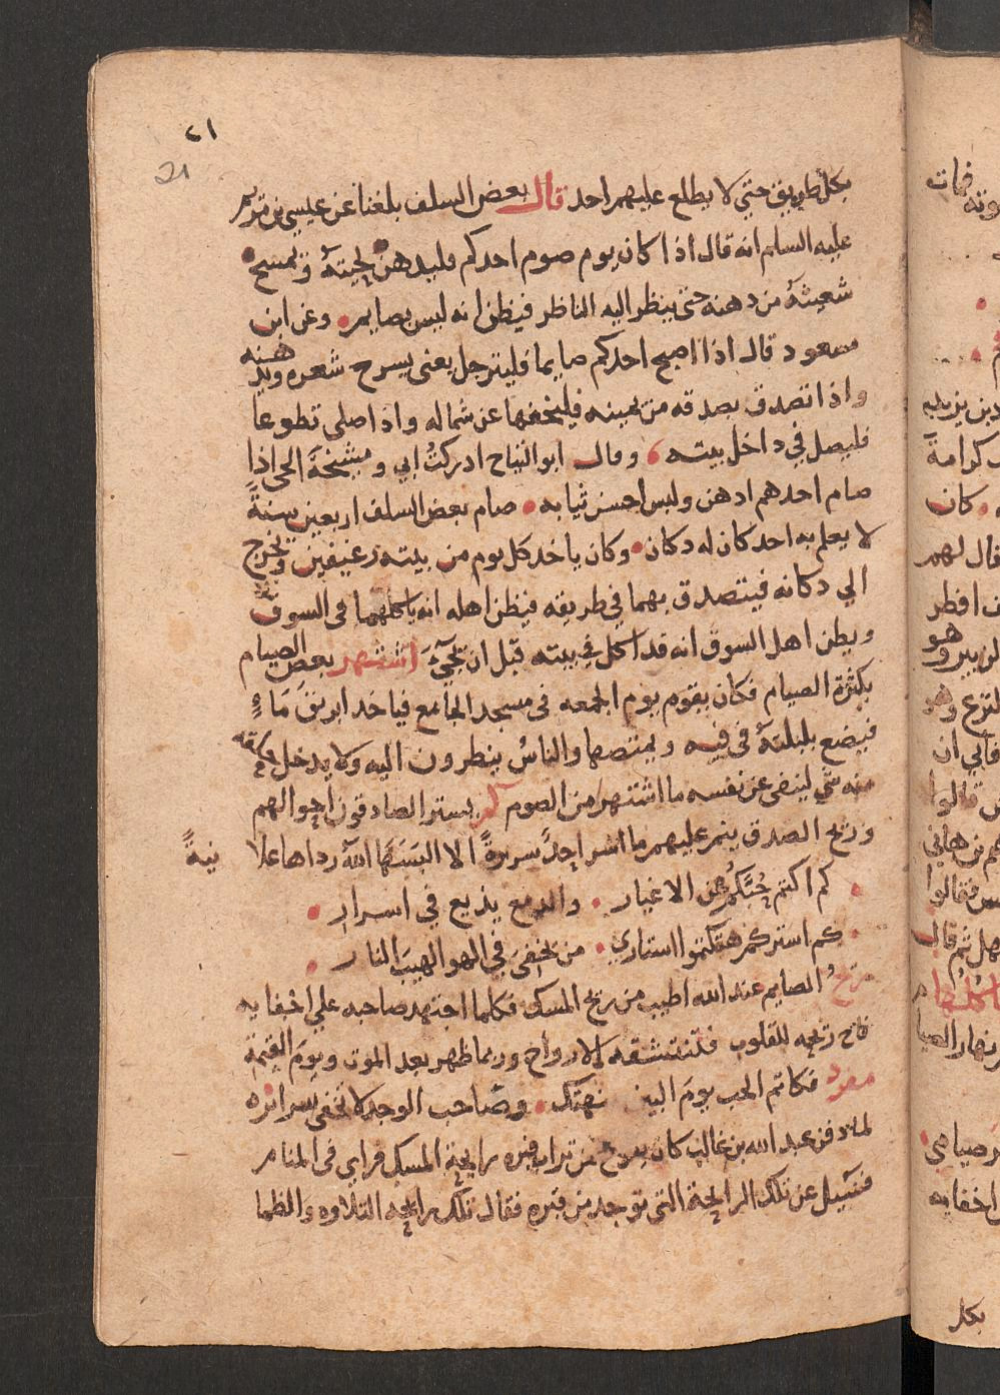 ٢١
21
بكل طريق حتي لا يطلع عليهم احد قال بعض السلف بلغنا عن عيسي بن مريم
عليه السلام انه قال اذا كان يوم صوم احدكم فليدهن لحيته ويمسح
شعيثه من دهنه حتي ينظر اليه الناظر فيظن انه ليس بصايم وعن ابن
مسعود قال اذا اصبح احدكم صايما فليترجل يعني يسرح شعره ويدهنه
واذا تصدق بصدقه من يمينه فليخفها عن شماله واذا صلي تطوعا
فليصل في داخل بيته وقال ابو التياح ادركتُ ابي ومشيخة الحي اذا
صام احدهم ادهن ولبس احسن ثيابه صام بعض السلف اربعين سنةً
لا يعلم به احد كان له دكان وكان ياخد كل يوم من بيته رغيفين ويخرج
الي دكانه فيتصدق بهما في طريقه فيظن اهله انه ياكلهما في السوق
ويظن اهل السوق انه قد اكل في بيته قبل ان يجيَ اشتهر بعض الصيام
بكثرة الصيام فكان يقوم يوم الجمعه في مسجد الجامع فياخد ابريق مَاءٍ
فيضع بلبلتهُ في فيه ويمتصها والناسُ ينظرون اليه ولا يدخل حلقه
منه شي لينفي عن نفسه ما اشتهر من الصوم كم يستر الصادقون احوالهم
وريح الصدق ينم عليهم ما اسر احدً سريرةً الا البَسَهَا اللهُ رداها علانيةً
كم اكتم حُبَّكُم عن الاغيار والدمع يذيع في اسرار
كم استركم هتكتموا استاري من يخفي في الهوا لهيبَ النار
ريحُ الصايم عند الله اطيب من ريح المسك فكلما اجتهد صاحبه علي اخفايه
فاح ريحه للقلوب فتستنشقه الارواح وربما ظهر بعد الموت ويومَ القيمة
مفرد فكاتم الحب يومَ البين نهتك وصاحب الوجد لا تخفي سرائره
لما دفن عبد الله بن غالب كان يفوح من تراب قبره رايحة المسك فراي في المنام
فسيل عن تلك الرايحة التي توجد من قبره فقال تلك رايحه التلاوه والظما